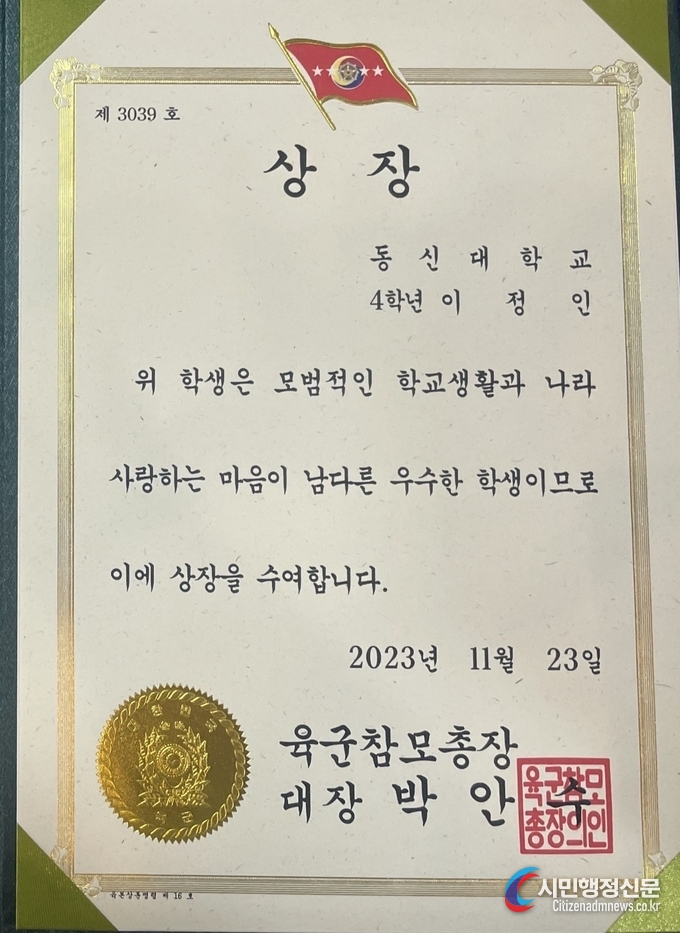 제 3039 호
상 장
동 신 대 학 교
4학년 이 정 인
위 학생은 모범적인 학교생활과 나라
사랑하는 마음이 남다른 우수한 학생이므로
이에 상장을 수여합니다.
2023년 11월 23일
육군참모총장
대장 박 안 수
육군참모
총장의인
대한민국
육군
육본상훈명령 제 16 호
시민행정신문
Citizenadmnews.co.kr